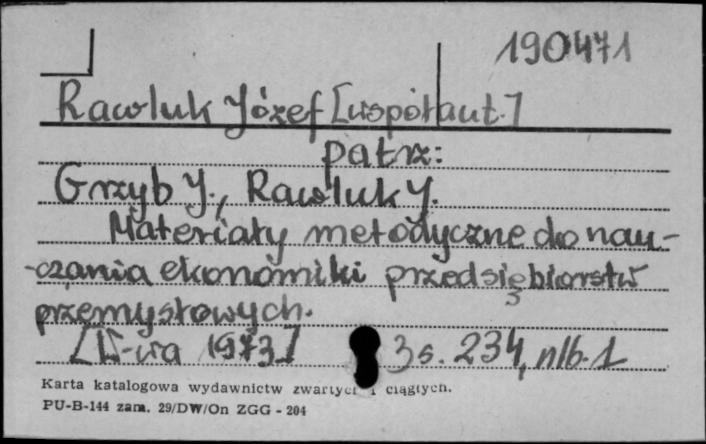 190471
Rawluk Józef [współaut.]
patrz:
Grzyb J., Rawluk J.
Materiały metodyczne do nau-
-czania ekonomiki przedsiębiorstw
przemysłowych.
[W-wa 1973] 3 s. 234, nlb. 1
Karta katalogowa wydawnictw zwartych i ciągłych.
PU-B-144 zam. 29/DW/On ZGG - 204